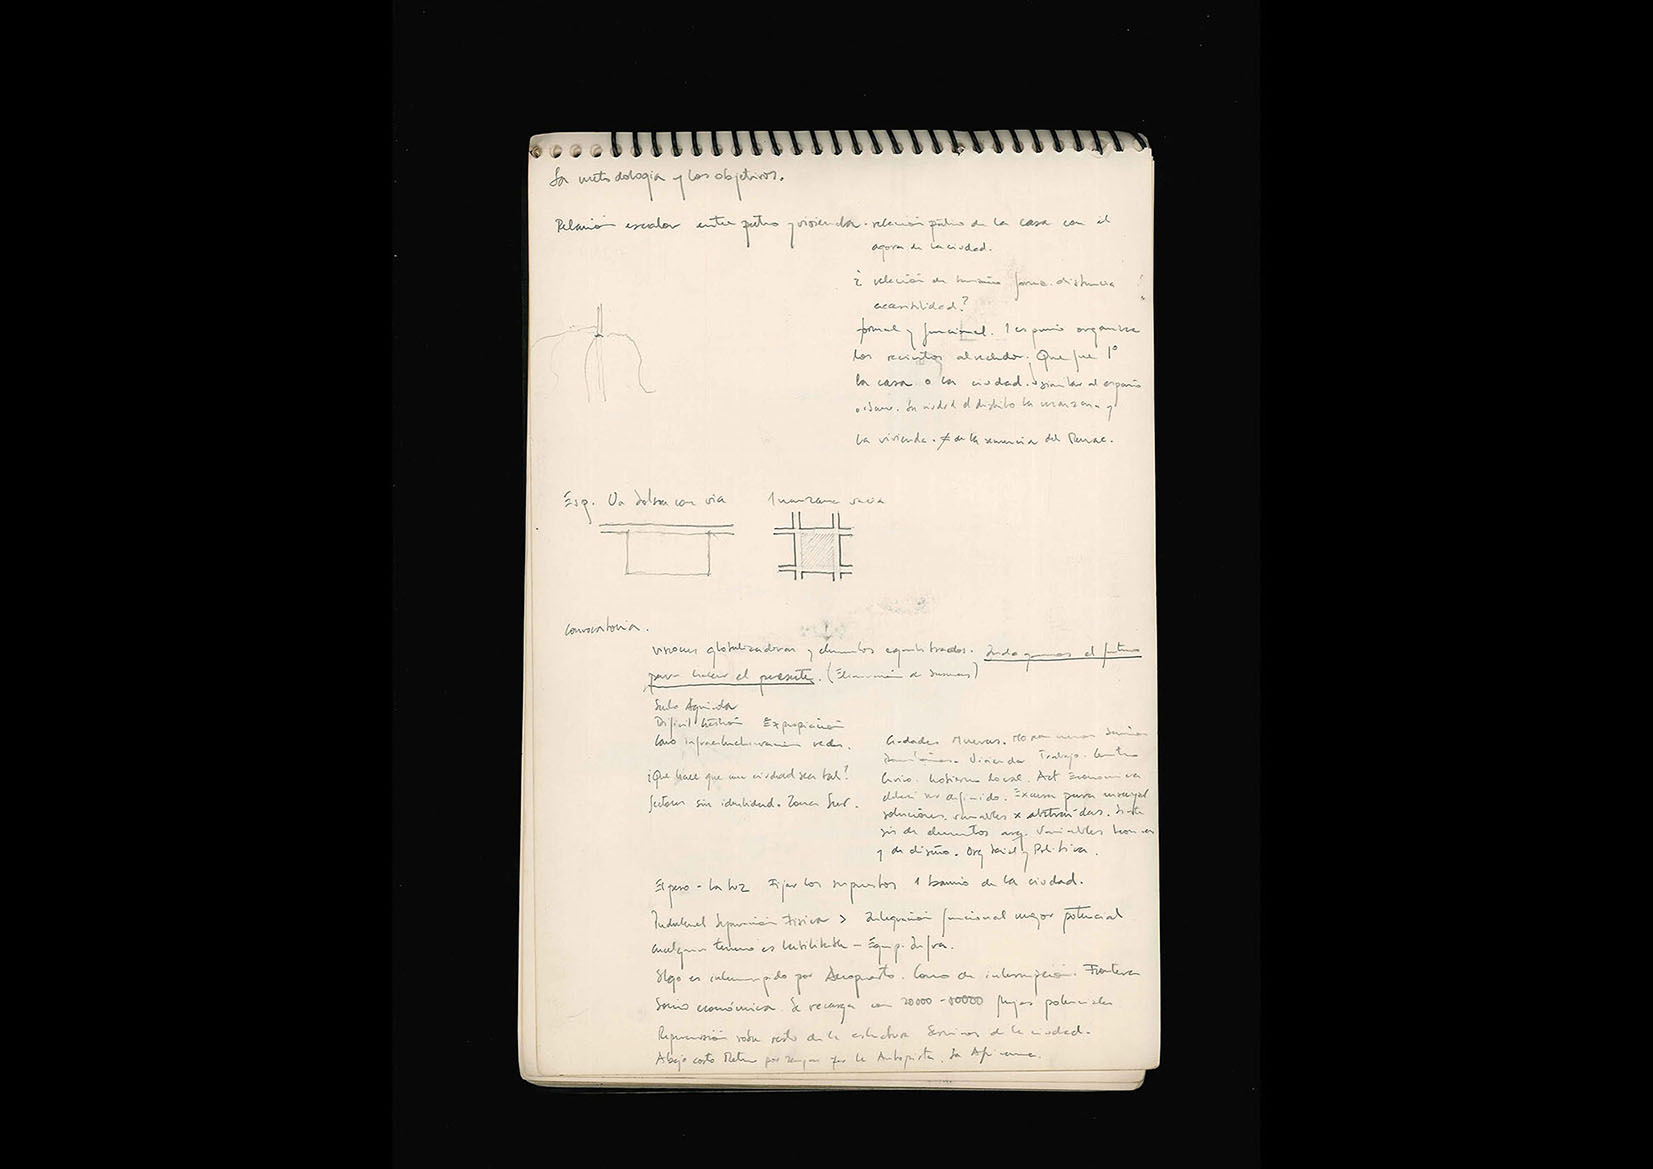 La metodologia y los objetivos.
Relación escalar entre patio y vivienda. relación patio de la casa con el
agora de la ciudad.
¿ relación de tamaño forma. distancia
accesibilidad?
formal y funcional. 1 espacio organiza
los recintos alrededor. Que fue 1º
la casa o la ciudad. similar al espacio
La ciudad el distrito la manzana y
la vivienda. ≠ de la secuencia del Renac.
Esq. Un con via
1 manzana vacia
Convocatoria.
visiones globalizadoras y elementos equilibrados. Indagamos el futuro
para hacer el presente. (Eliminación de)
Suelo Agricola
Dificil Gestión Expropiación
Como infraestructura redes.
¿Que hace que una ciudad sea tal?
Sectores sin identidad. Zona Sur.
Ciudades Nuevas.
Vivienda Trabajo. Centro
Civico. Gobierno Local. Act Economica
debera ser definido. Excusa para ensayar
soluciones. variables x abstraidas. Sinte
sis de elementos arq. Variables
y de diseño. Org Social y Politica.
El peso - la luz Fijar los supuestos 1 barrio de la ciudad.
Separación Fisica > Integración funcional mejor potencial
cualquier terreno es habilitable - Equip. Infra.
Algo es interrumpido por Aeropuerto. Cono de interrupción. Frontera
Socio económica. Se recarga con 20000 - 80000 potenciales
Repercusión sobre resto de la estructura Servicios de la ciudad.
A bajo costo Metro por la Autopista. La